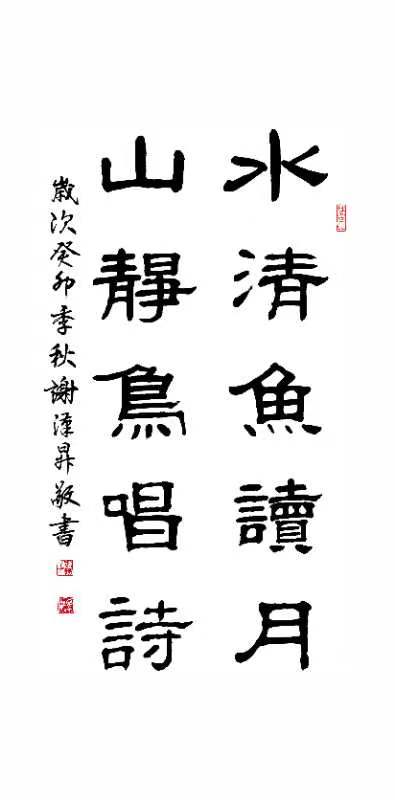 水清魚讀月
山靜鳥唱詩
歲次癸卯季秋謝漢昇敬書